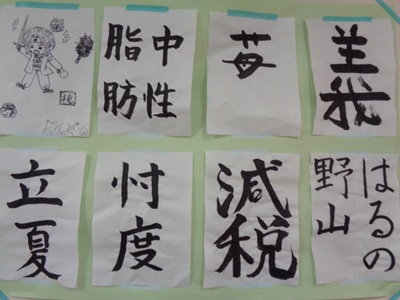 中性
脂肪
苺
義
立夏
忖度
減税
はるの
野山